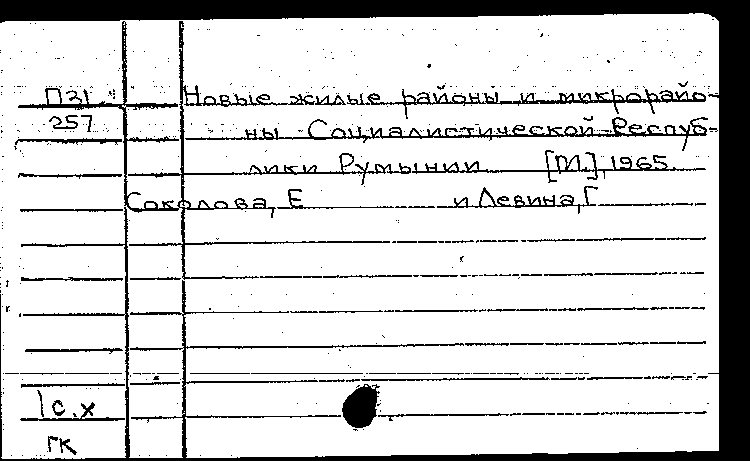 П31 Новые жилые районы и микрорайо-
257 ны Социалистической Респуб-
лики Румынии [М.], 1965.
Соколова, Е и Левина, Г
1 с.х
ГК